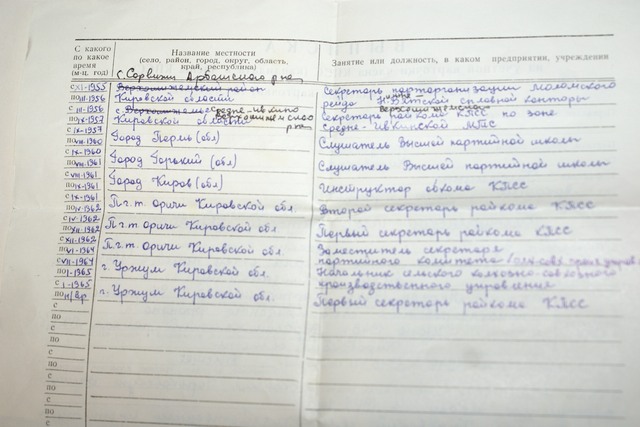 С какого
по какое
время
(м-ц, год)
Название местности
(село, район, город, округ, область,
край, республика)
Занятие или должность, в каком предприятии, учреждении
с. Сорвижи Арбажского р-на
с XI-1955
Верхошижемский район
Секретарь парторганизации Моломского
по III-1956
Кировской области
рейда Н-Вятской сплавной конторы
с III-1956
с. Верхошижемье Средне-Ивкино
Верхошижемского
р-на
Секретарь райкома КПСС по зоне
по IX-1957
Кировской области
Средне-Ивкинской МТС
с IX-1957
по VII-1960
Город Пермь (обл)
Слушатель Высшей партийной школы
с IX-1960
по VII-1961
Город Горький (обл)
Слушатель Высшей партийной школы
с VIII-1961
по IX-1961
Город Киров (обл)
Инструктор обкома КПСС
с IX-1961
по IV-1962
П.г.т. Оричи Кировской обл.
Второй секретарь райкома КПСС
с IV-1962
по XII-1962
П.г.т. Оричи Кировской обл.
Первый секретарь райкома КПСС
с XII-1962
по VI-1964
П.г.т. Оричи Кировской обл.
Заместитель секретаря
партийного комитета
с VII-1964
по I-1965
г. Уржум Кировской обл.
Начальник сельского колхозно-совхозного
производственного управления
с I-1965
по н/вр
г. Уржум Кировской обл.
Первый секретарь райкома КПСС
с
по
с
по
с
по
с
по
с
по
с